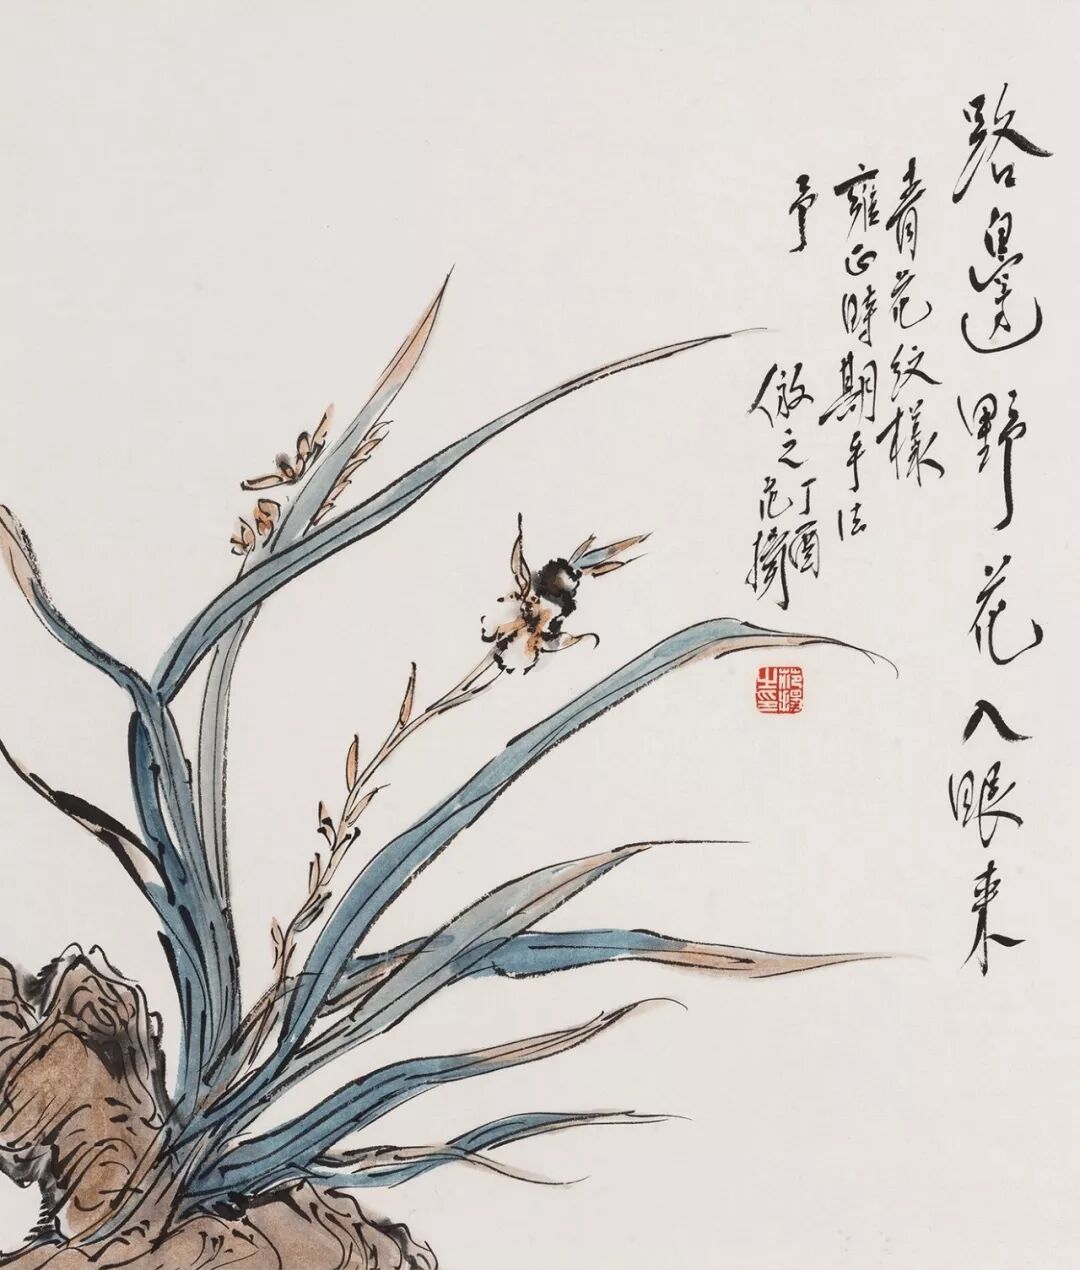 路邊野花入眼來
青花紋樣
雍正時期手法
予
倣之
丁酉
范揚